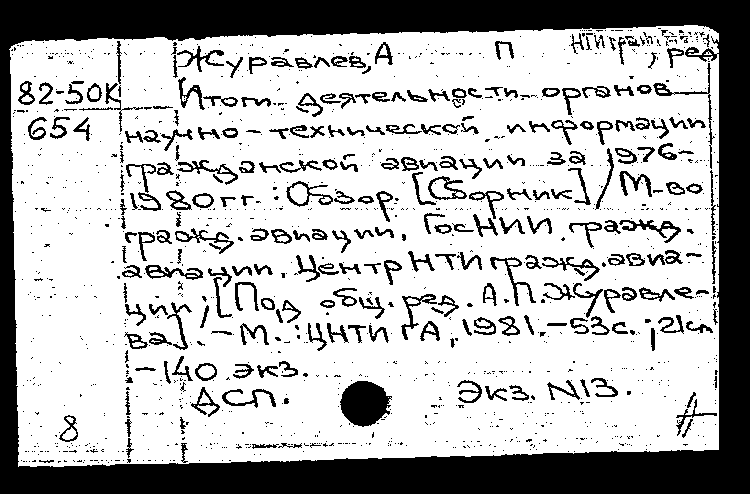 НТИ гражд.
Журавлев, А П , ред
82-50К Итоги деятельности органов
654 научно-технической информации
гражданской авиации за 1976-
1980 гг. : Обзор. [Сборник] / М-во
гражд. авиации, ГосНИИ гражд.
авиации, Центр НТИ гражд. авиа-
ции; [Под общ. ред. А.П. Журавле-
ва]. - М. : ЦНТИ ГА, 1981. - 53с. ; 21см
- 140 экз.
ДСП. Экз. N13.
8